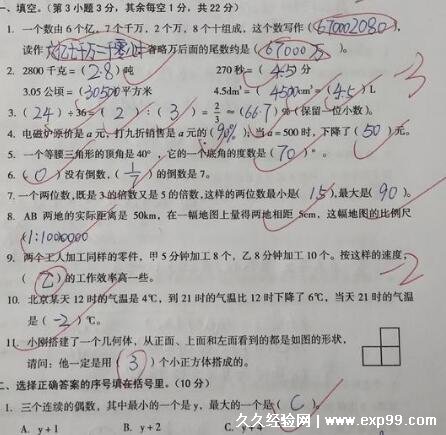 一、填空。(第3小题3分，其余每空1分，共22分)
1. 一个数由6个亿，7个千万，2个万，8个十组成，这个数写作(67002080)，
读作( )省略万后面的尾数约是(67000万)。
2. 2800千克=(2.8)吨 270秒=(4.5)分
3.05公顷=(30500)平方米 4.5dm³=(4500)cm³=(4.5)L
-3
3.(24)÷36=(2):(3)=2/3≈(66.7)%(保留一位小数)。
4. 电磁炉原价是a元，打九折销售是a元的(90%)；当a=500时，下降了(50)元。
5. 一个等腰三角形的顶角是40°，它的一个底角的度数是(70)°。
6.(0)没有倒数，(1/7)的倒数是7。
7. 一个两位数，既是3的倍数又是5的倍数，这样的两位数最小是(15)，最大是(90)。
8. AB两地的实际距离是50km，在一幅地图上量得两地相距5cm，这幅地图的比例尺
(1:1000000)
9. 两个工人加工同样的零件，甲5分钟加工8个，乙8分钟加工10个。按这样的速度，
(乙)的工作效率高一些。
-2
10. 北京某天12时的气温是4℃，到21时的气温比12时下降了6℃，当天21时的气温
是(-2)℃。
11. 小刚搭建了一个几何体，从正面、上面和左面看到的都是如图的形状，
请问：他一定是用(3)个小正方体搭成的。
二、选择正确答案的序号填在括号里。(10分)
1. 三个连续的偶数，其中最小的一个是y，最大的一个是(C)。
A. y+1 B. y+2 C. y+4
久久经验网 www.exp99.com